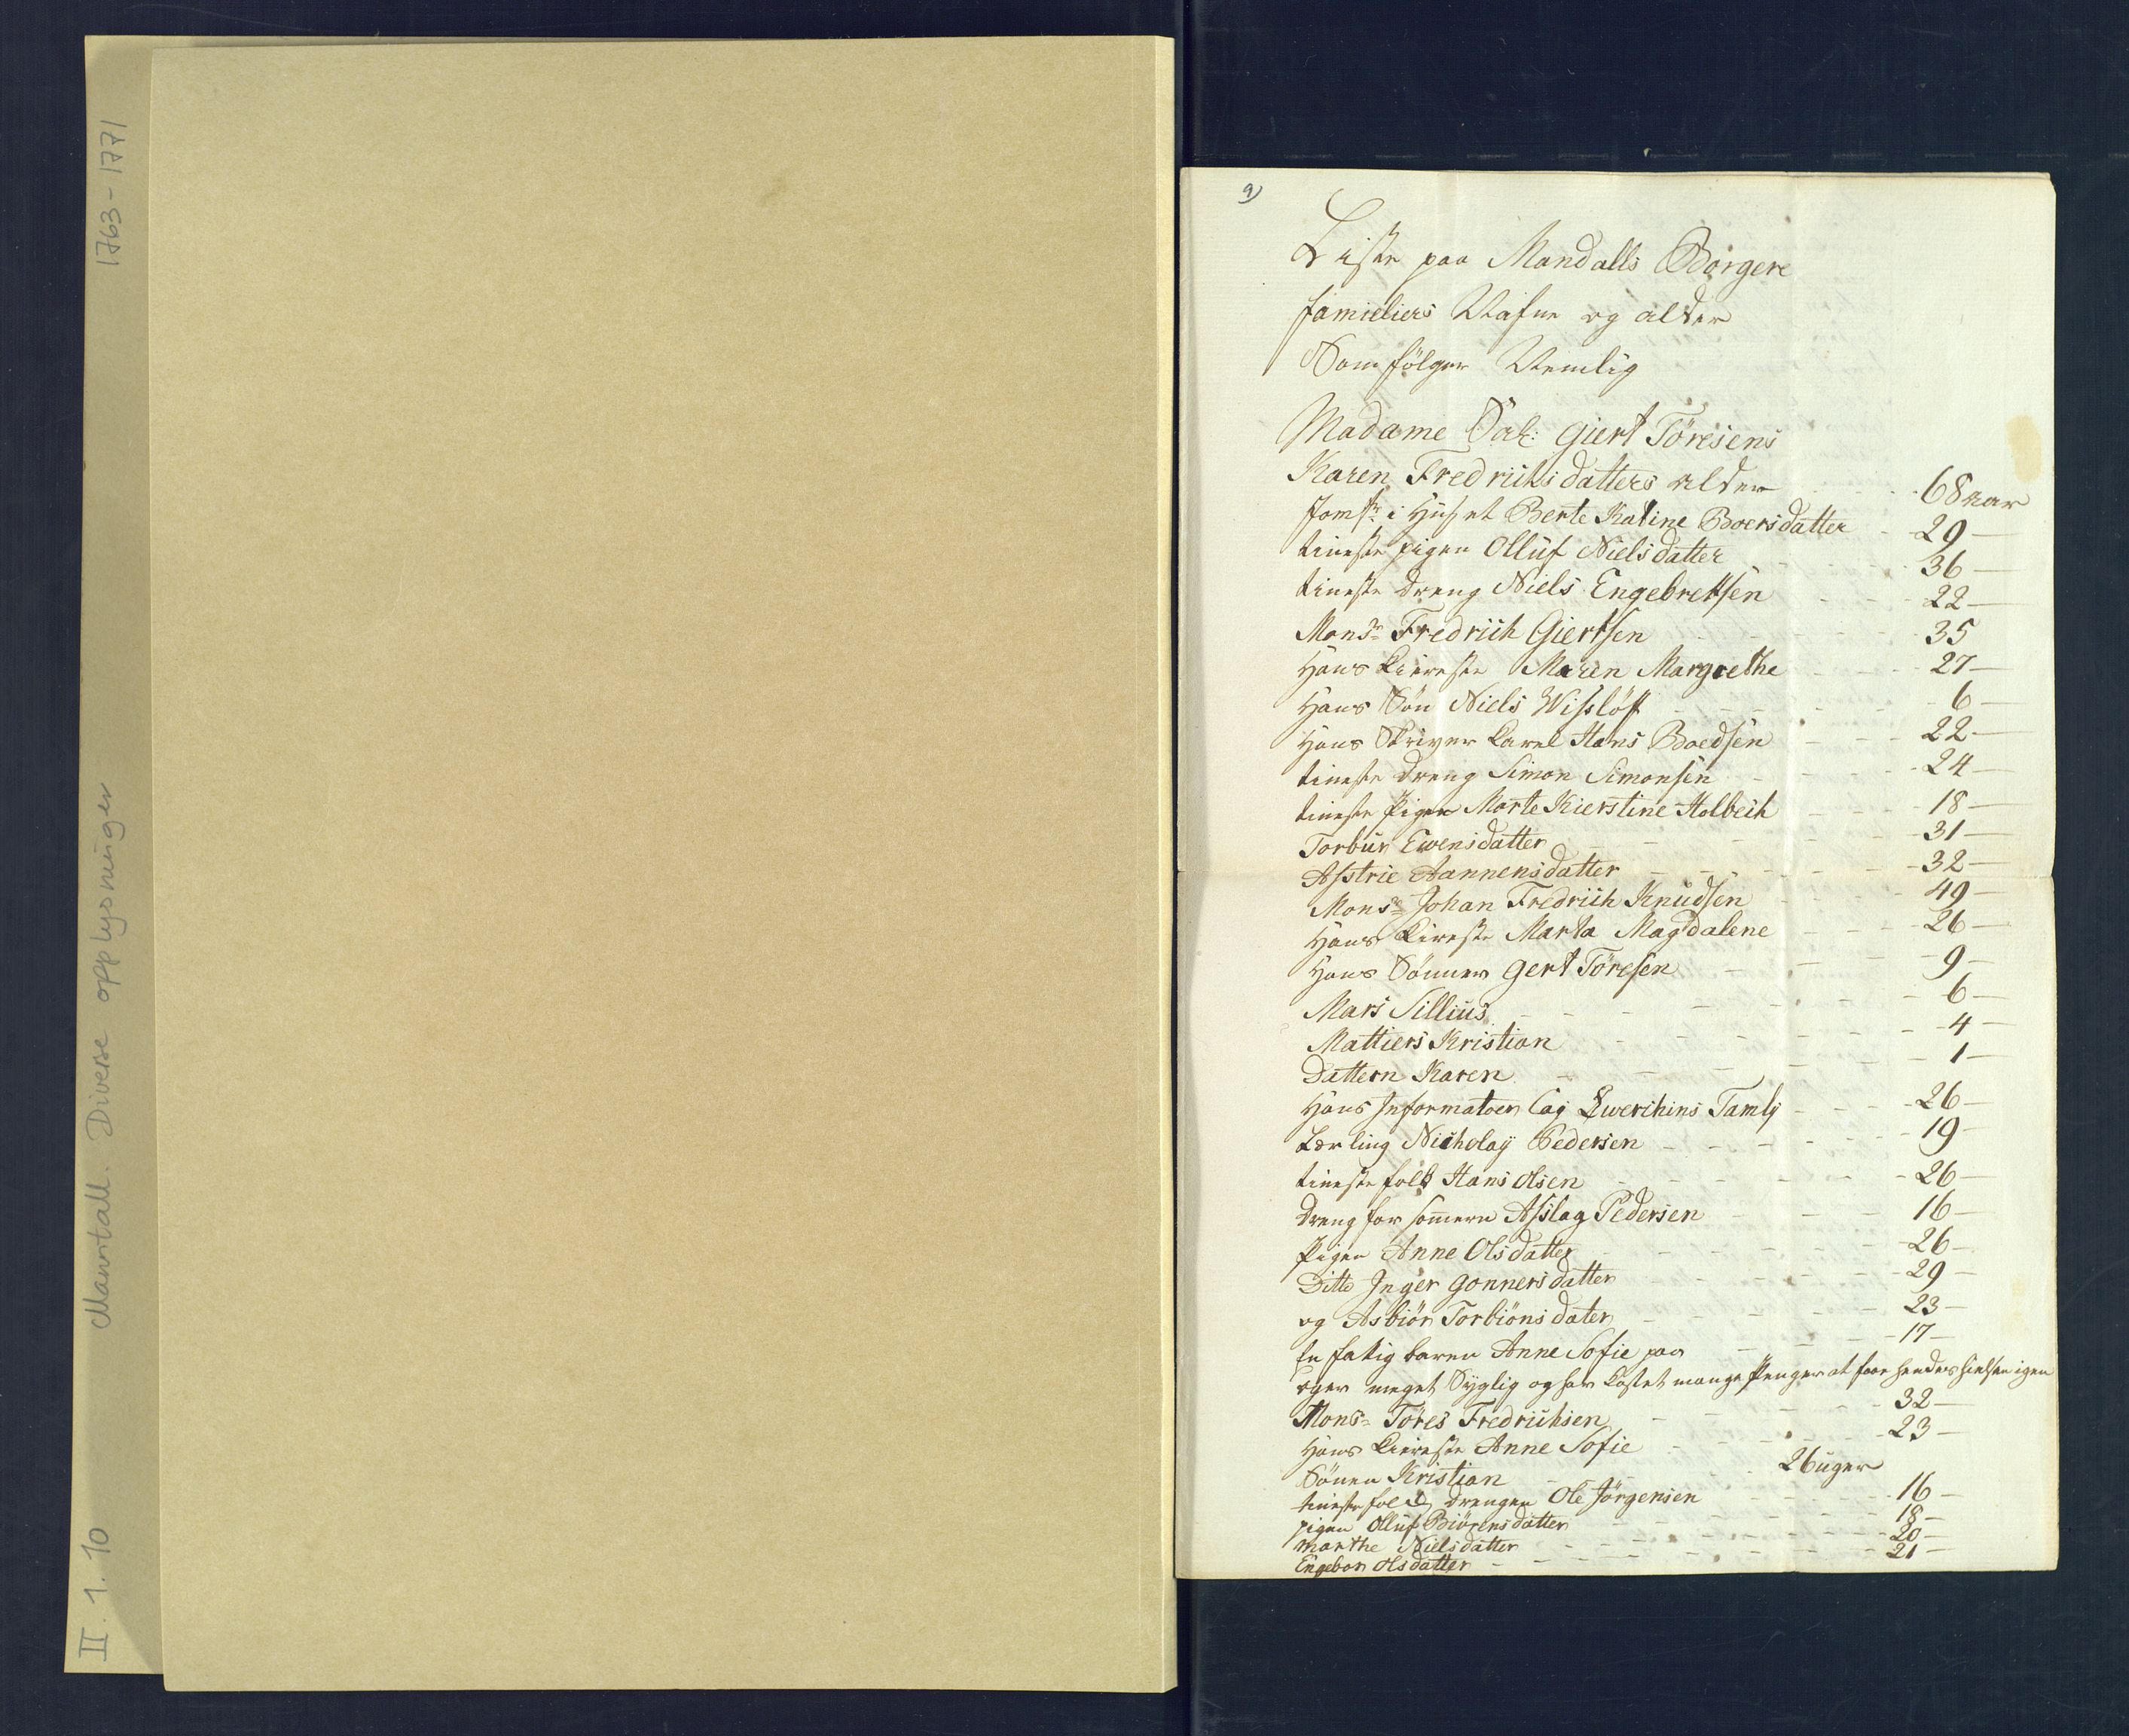 II. 1. 10 Manntall. Diverse opplysninger 1763-1771
9)
Liste paa Mandalls Borgere
familiers Nafne og alder
Som følger Nemlig
Madame Sal: Giert Töresens
Karen Fredrichsdatters alder 68 aar
Jomfr i Huset Berte Katine Boersdatter 29
tieneste pigen Olluf Nielsdatter 36
tieneste dreng Niels Engebretsen 22
Monsr Fredrich Giertsen 35
Hans Kiereste Maren Margrethe 27
Hans Sön Niels Wislöff 6
Hans Skriver Karel Hans Boedsen 22
tieneste dreng Simon Simonsen 24
tieneste Pigen Marte Kierstine Holbech 18
Torbur Evensdatter 31
Asstrie Aannensdatter 32
Monsr Johan Fredrich Knudsen 49
Hans Kireste Marta Magdalene 26
Hans Sönner Gert Töresen 9
Mars Sillius 6
Mattiers Kristian 4
Dattern Karen 1
Hans Informatoer Caj Tamly 26
Lærling Nicholaij Pedersen 19
tieneste folk Hans Olsen 26
Dreng for somern Asslag Pedersen 16
Pigen Anne Olsdatter 26
Ditto Inger Gonnersdatter 29
og Asbiör Torbiönsdater 23
En fatig barn Anne Sofie paa 17
og er meget Syglig og har kostet mange Penger at faae hendes helsen igen
Monsr Töres Fredrichsen 32
Hans Kiereste Anne Sofie 23
Sönen Kristian 26 uger
tieneste folk drengen Ole Jörgensen 16
pigen Olluf Biörensdatter 18
Marthe Nielsdatter 20
Engebor Olsdatter 21